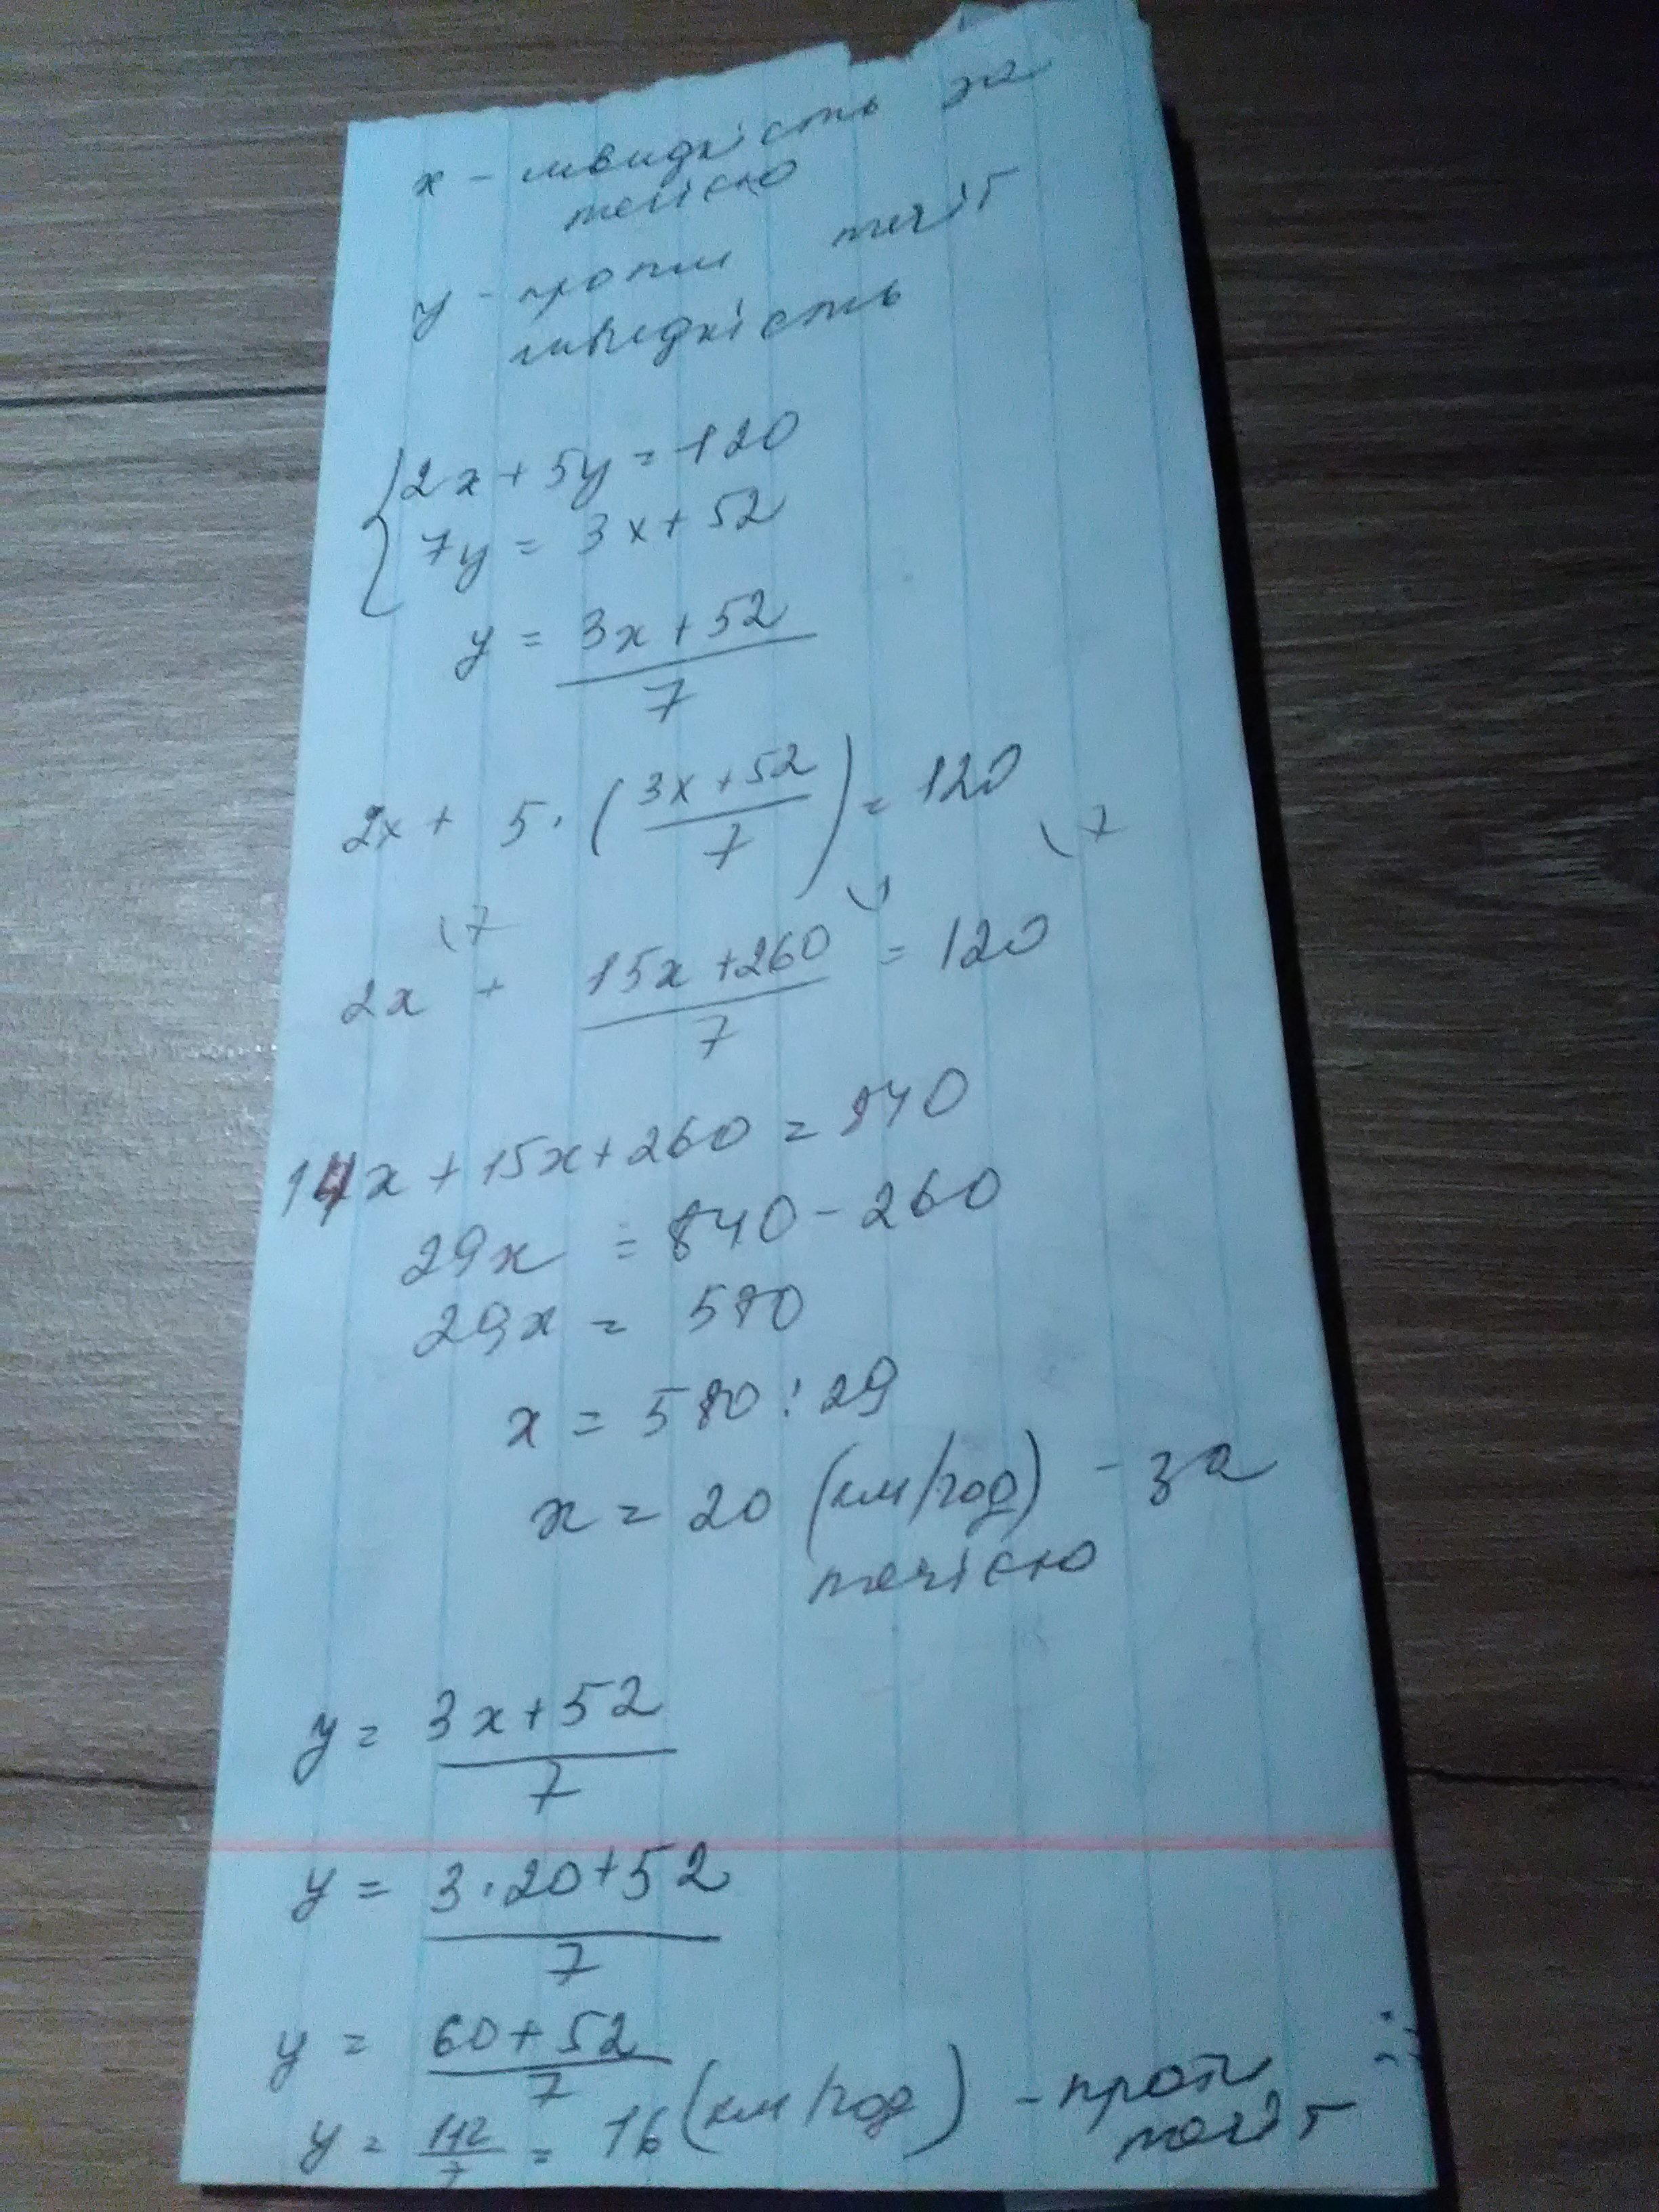 x - швидкість за
течією
y - проти течії
швидкість
{ 2x + 5y = 120
7y = 3x + 52
y = 3x + 52
7
2x + 5 · ( 3x + 52 / 7 ) = 120
\7 \1 \7
2x + 15x + 260 = 120
7
14x + 15x + 260 = 840
29x = 840 - 260
29x = 580
x = 580 : 29
x = 20 (км/год) - за
течією
y = 3x + 52
7
y = 3 · 20 + 52
7
y = 60 + 52
7
y = 112/7 = 16 (км/год) - проти
течії